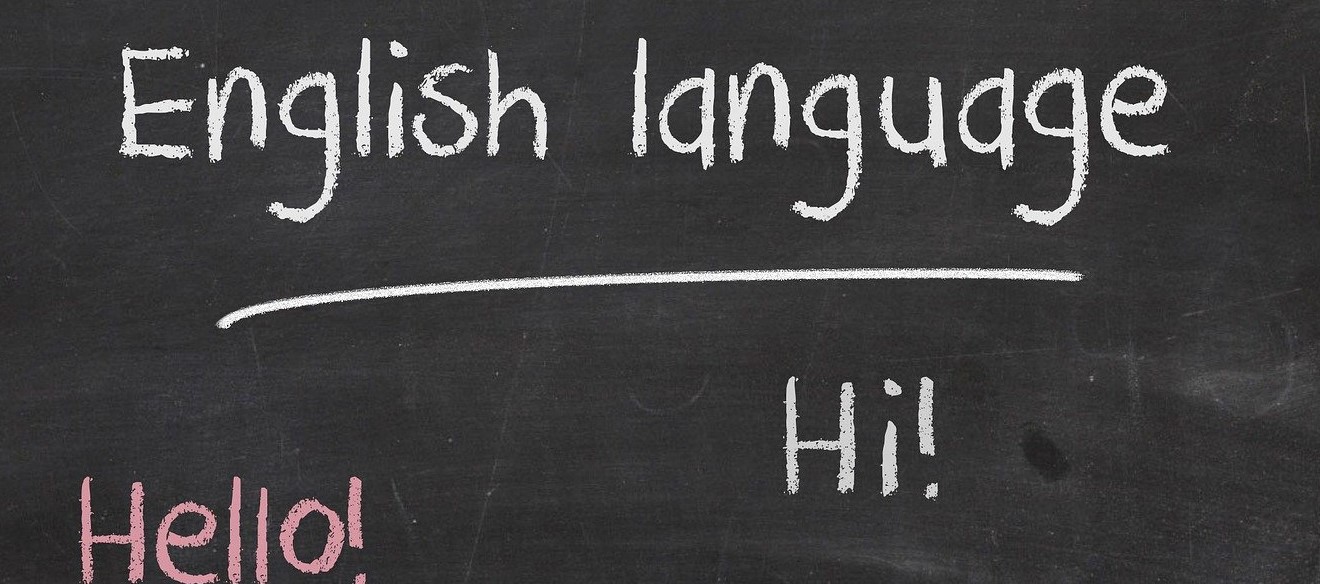 English language
Hi!
Hello!